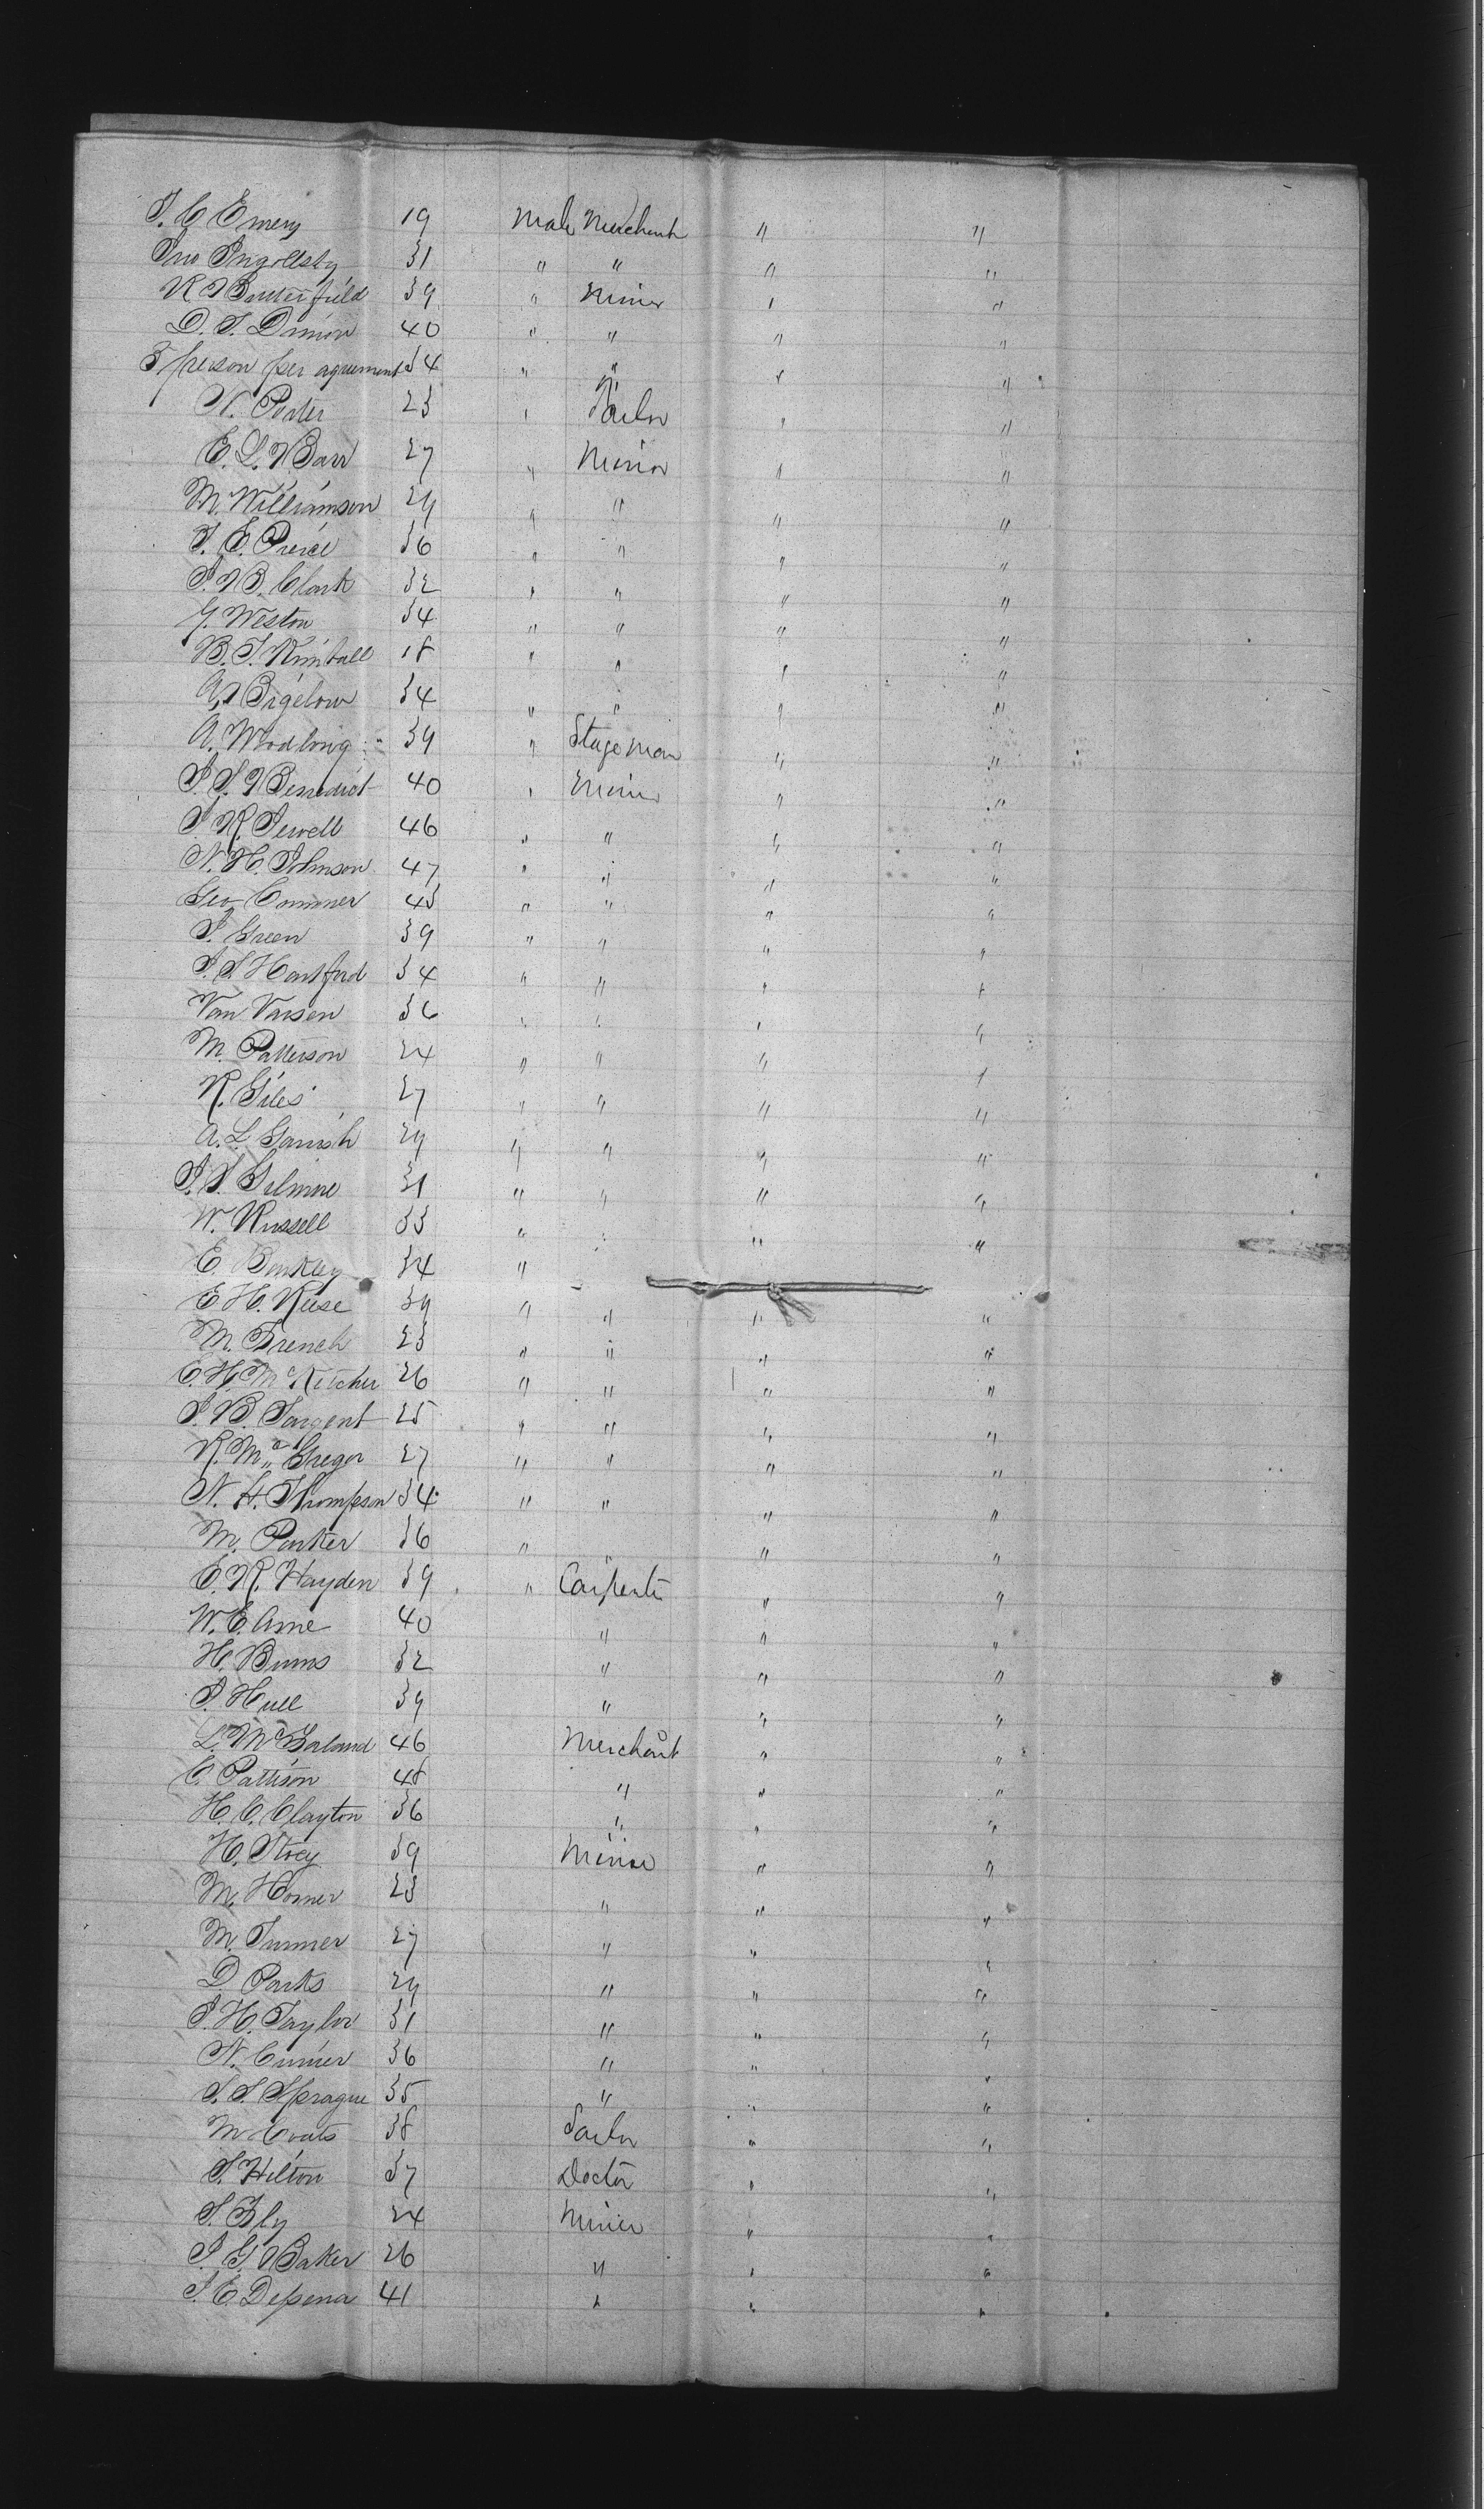 J. C. Emery 19 Male Merchant " "
Jno Ingollsby 31 " " " "
R Butterfield 39 " Miner " "
D. S. Dimon 40 " " " "
3 person per agreement 34 " " " "
N. Porter 23 " Sailor " "
E. L. Barr 27 " Miner " "
M. Williamson 29 " " " "
J. E. Pierce 36 " " " "
J. B. Clark 32 " " " "
G. Weston 34 " " " "
B. F. Kimball 18 " " " "
A. Bigelow 34 " " " "
A. Woodlong 39 " Stage Man " "
J. S. Benedict 40 " Miner " "
J. R. Jewell 46 " " " "
N. H. Johnson 47 " " " "
Geo Commer 43 " " " "
J. Green 39 " " " "
J. S Hartford 34 " " " "
Van Varsen 36 " " " "
M. Patterson 24 " " " "
R. Giles 27 " " " "
A. L. Garrish 29 " " " "
J. S. Gilmore 31 " " " "
W. Russell 33 " " " "
E. Barkley 34 "
E H. Reese 39 " " " "
M. French 23 " " " "
E. H. McKetcher 26 " " " "
J. B. Sargent 25 " " " "
R. McGregor 27 " " " "
N. H. Thompson 34 " " " "
M. Parker 36 " " " "
E. R. Hayden 39 " Carpenter " "
W. E. Ame 40 " " "
H. Burns 32 " " "
J. Hull 39 " " "
L. McFarland 46 Merchant " "
C. Pattison 48 " " "
H. C. Clayton 36 " " "
H. Story 39 Miner " "
M. Homer 23 " " "
M. Turner 27 " " "
D. Parks 29 " " "
J. H. Taylor 31 " " "
N. Currier 36 " " "
S. S. Sprague 35 " " "
M Coats 38 Sailor " "
S. Hilton 37 Doctor " "
S. Fly 24 Miner " "
J. G. Baker 26 " " "
J. E. Depena 41 " " "